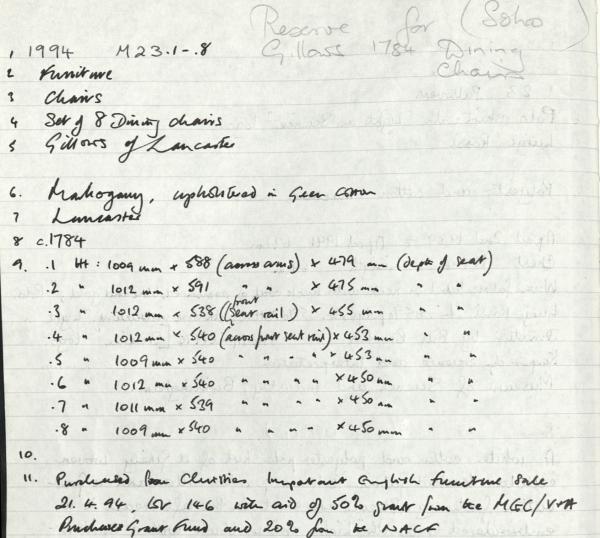 Reserve for (Soho)
1 1994 M23.1-.8 Gillows 1784 Dining
Chairs
2 Furniture
3 Chairs
4 Set of 8 Dining chairs
5 Gillows of Lancaster
6. Mahogany, upholstered in Green cotton
7 Lancaster
8 c.1784
9. .1 Ht : 1009 mm × 588 (across arms) × 479 mm (depth of seat)
.2 " 1012 mm × 591 " " × 475 mm " "
.3 " 1012 mm × 538 (front seat rail) × 455 mm " "
.4 " 1012 mm × 540 (across front seat rail) × 453 mm " "
.5 " 1009 mm × 540 " " " " × 453 mm " "
.6 " 1012 mm × 540 " " " " × 450 mm " "
.7 " 1011 mm × 539 " " " " × 450 mm " "
.8 " 1009 mm × 540 " " " " × 450 mm " "
10.
11. Purchased from Christies Important English Furniture Sale
21.4.94, lot 146 with aid of 50% grant from the MGC/V+A
Purchase Grant Fund and 20% from the NACF